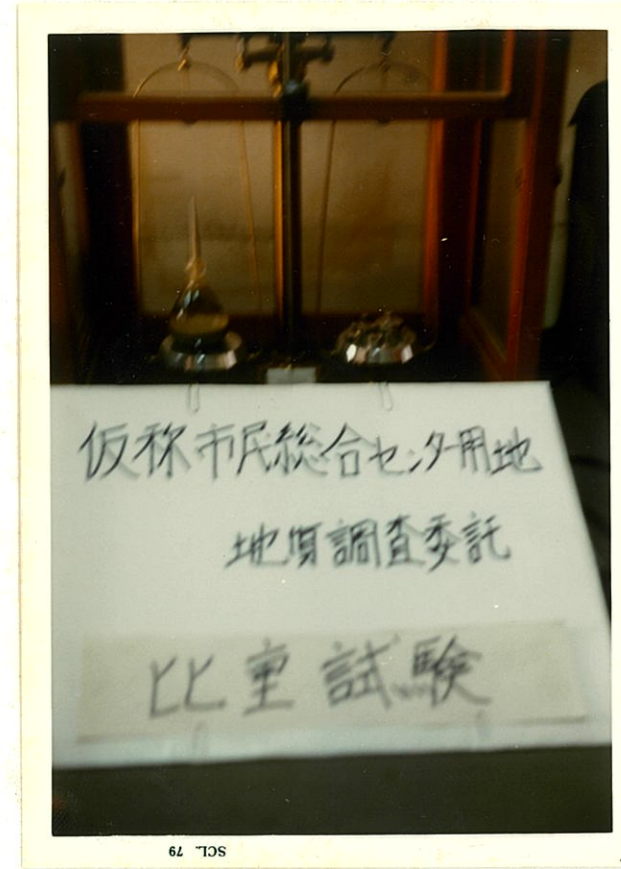 仮称市民総合センター用地
地質調査委託
比重試験
SCL. 79